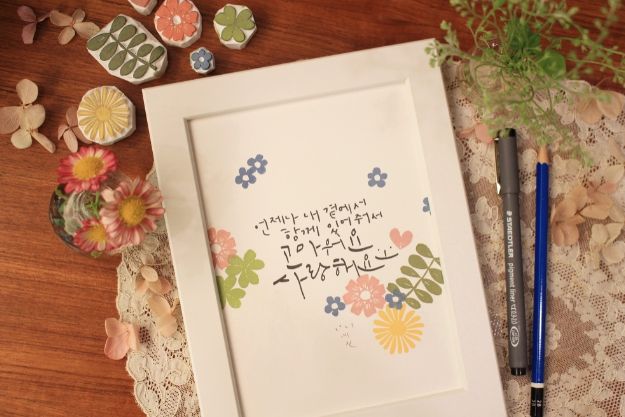 언제나 내 곁에서
함께 있어줘서
고마워요
사랑해요
STAEDTLER
pigment liner